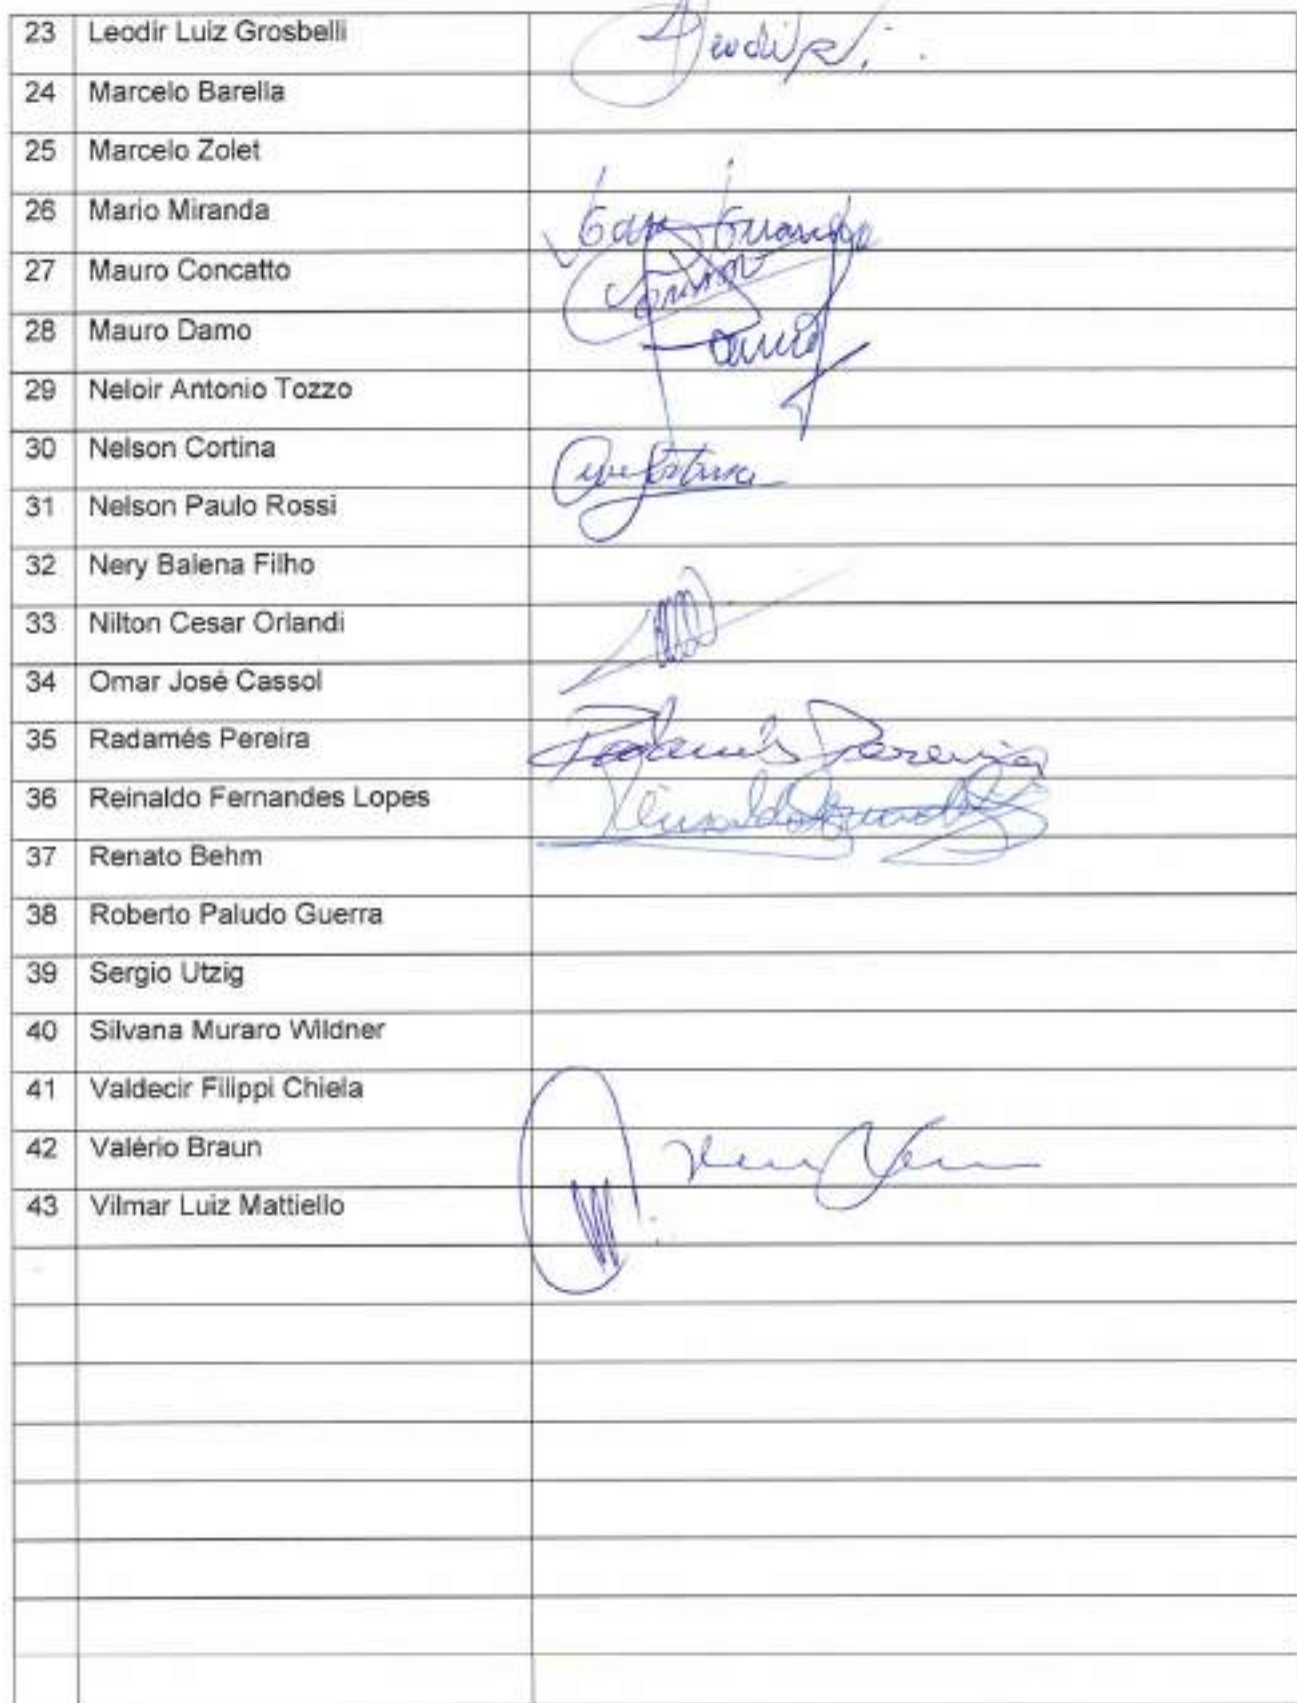 23 Leodir Luiz Grosbelli
24 Marcelo Barella
25 Marcelo Zolet
26 Mario Miranda
27 Mauro Concatto
28 Mauro Damo
29 Neloir Antonio Tozzo
30 Nelson Cortina
31 Nelson Paulo Rossi
32 Nery Balena Filho
33 Nilton Cesar Orlandi
34 Omar José Cassol
35 Radamés Pereira Radamés Pereira
36 Reinaldo Fernandes Lopes
37 Renato Behm
38 Roberto Paludo Guerra
39 Sergio Utzig
40 Silvana Muraro Wildner
41 Valdecir Filippi Chiela
42 Valério Braun
43 Vilmar Luiz Mattiello